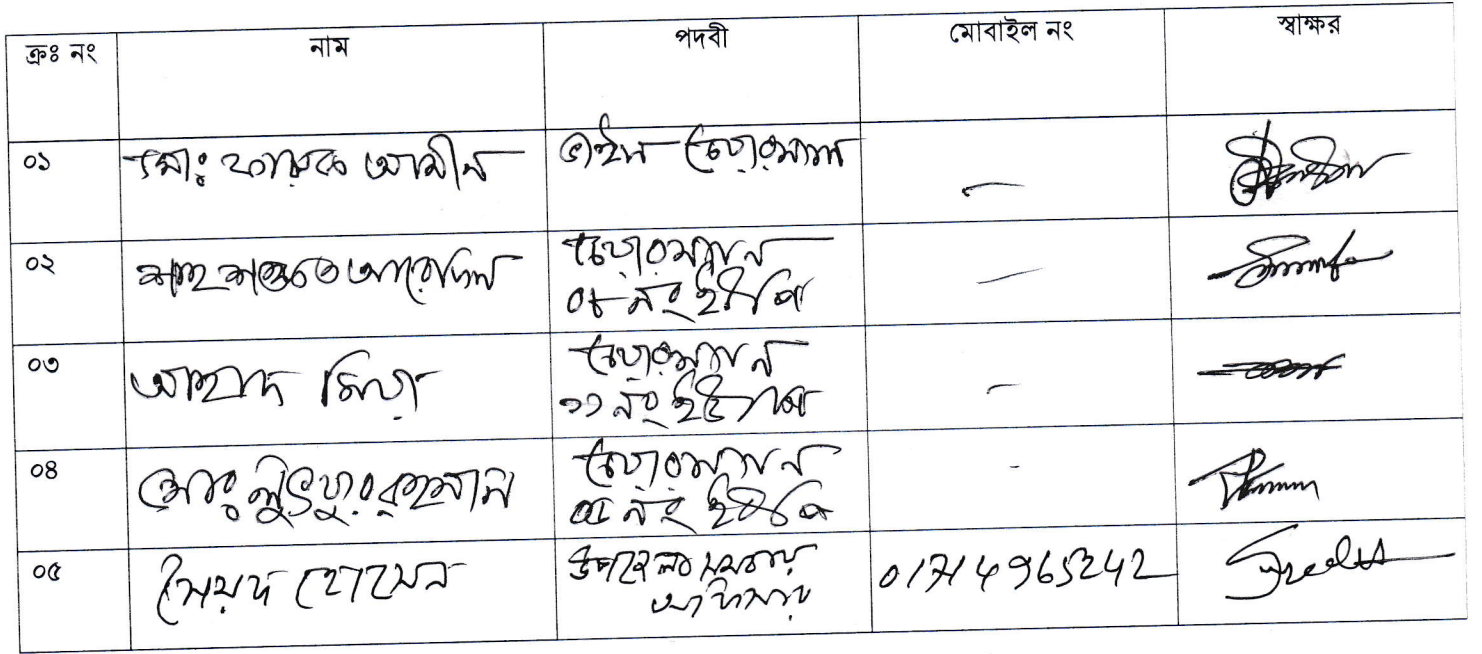 ক্রঃ নং নাম পদবী মোবাইল নং স্বাক্ষর
০১ মোঃ ফারুক আমীন ভাইস চেয়ারম্যান –
০২ শাহ শওকত আরেফিন চেয়ারম্যান –
০৮ নং ইউপি
০৩ আহাদ মিয়া চেয়ারম্যান –
১১ নং ইউপি
০৪ মোঃ লুৎফুর রহমান চেয়ারম্যান -
নং ইউপি
০৫ সৈয়দ হোসেন উপজেলা সমবায় 01714965242
অফিসার